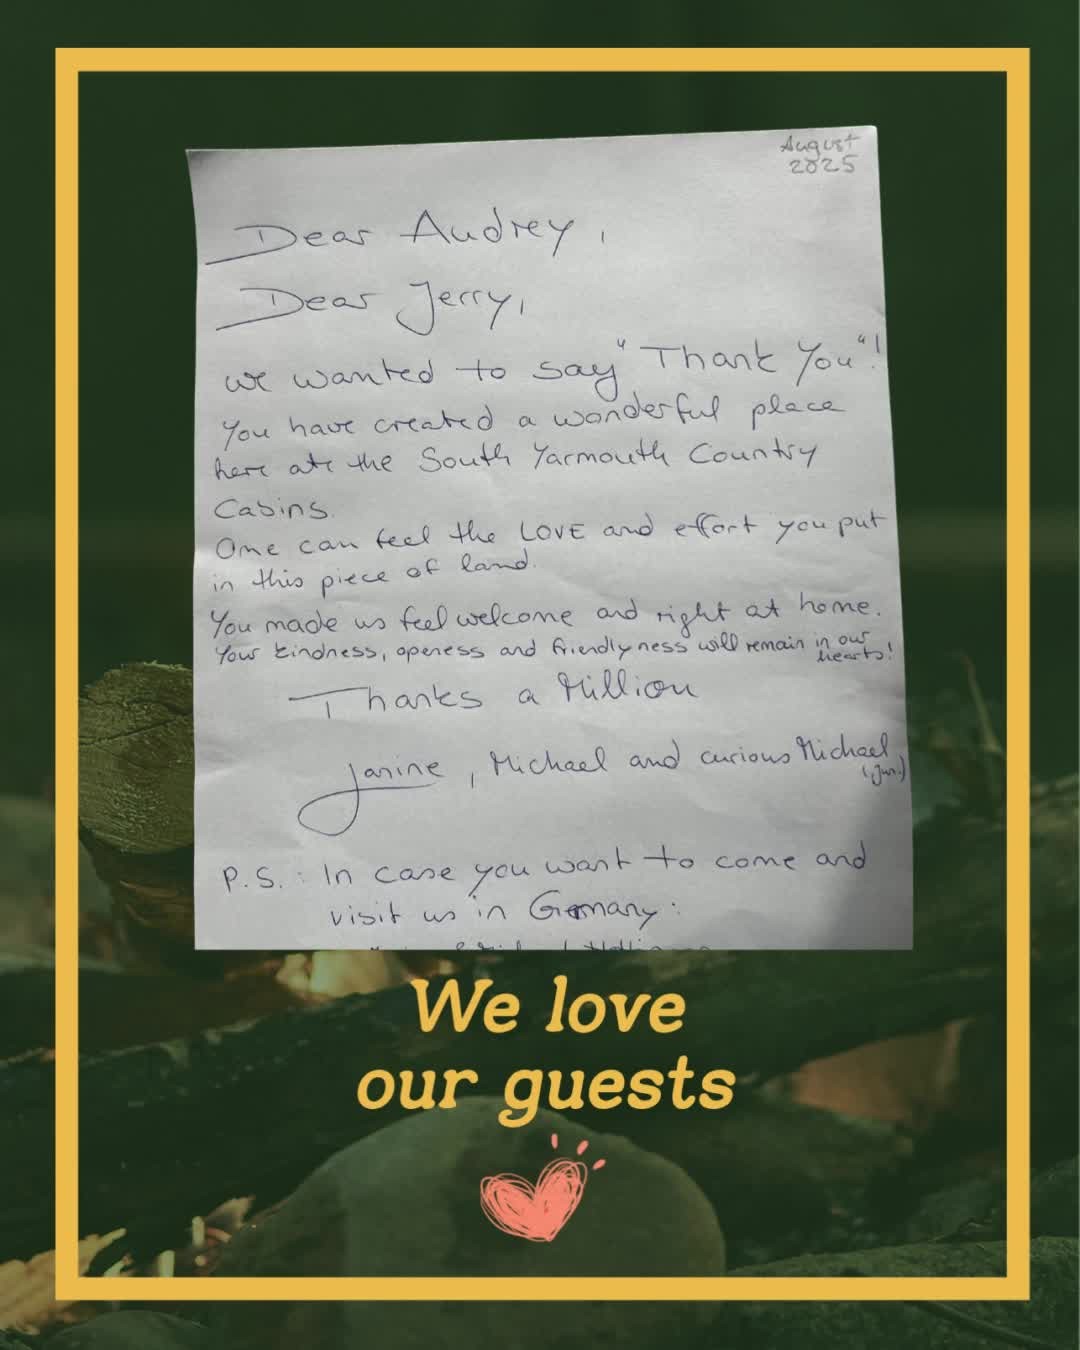 August
2025
Dear Audrey,
Dear Jerry,
we wanted to say "Thank You"!
You have created a wonderful place
here at the South Yarmouth Country
Cabins.
One can feel the LOVE and effort you put
in this piece of land.
You made us feel welcome and right at home.
Your kindness, openess and friendlyness will remain in our
hearts!
Thanks a Million
Janine, Michael and curious Michael
(Jun.)
P.S.: In case you want to come and
visit us in Germany:
We love
our guests